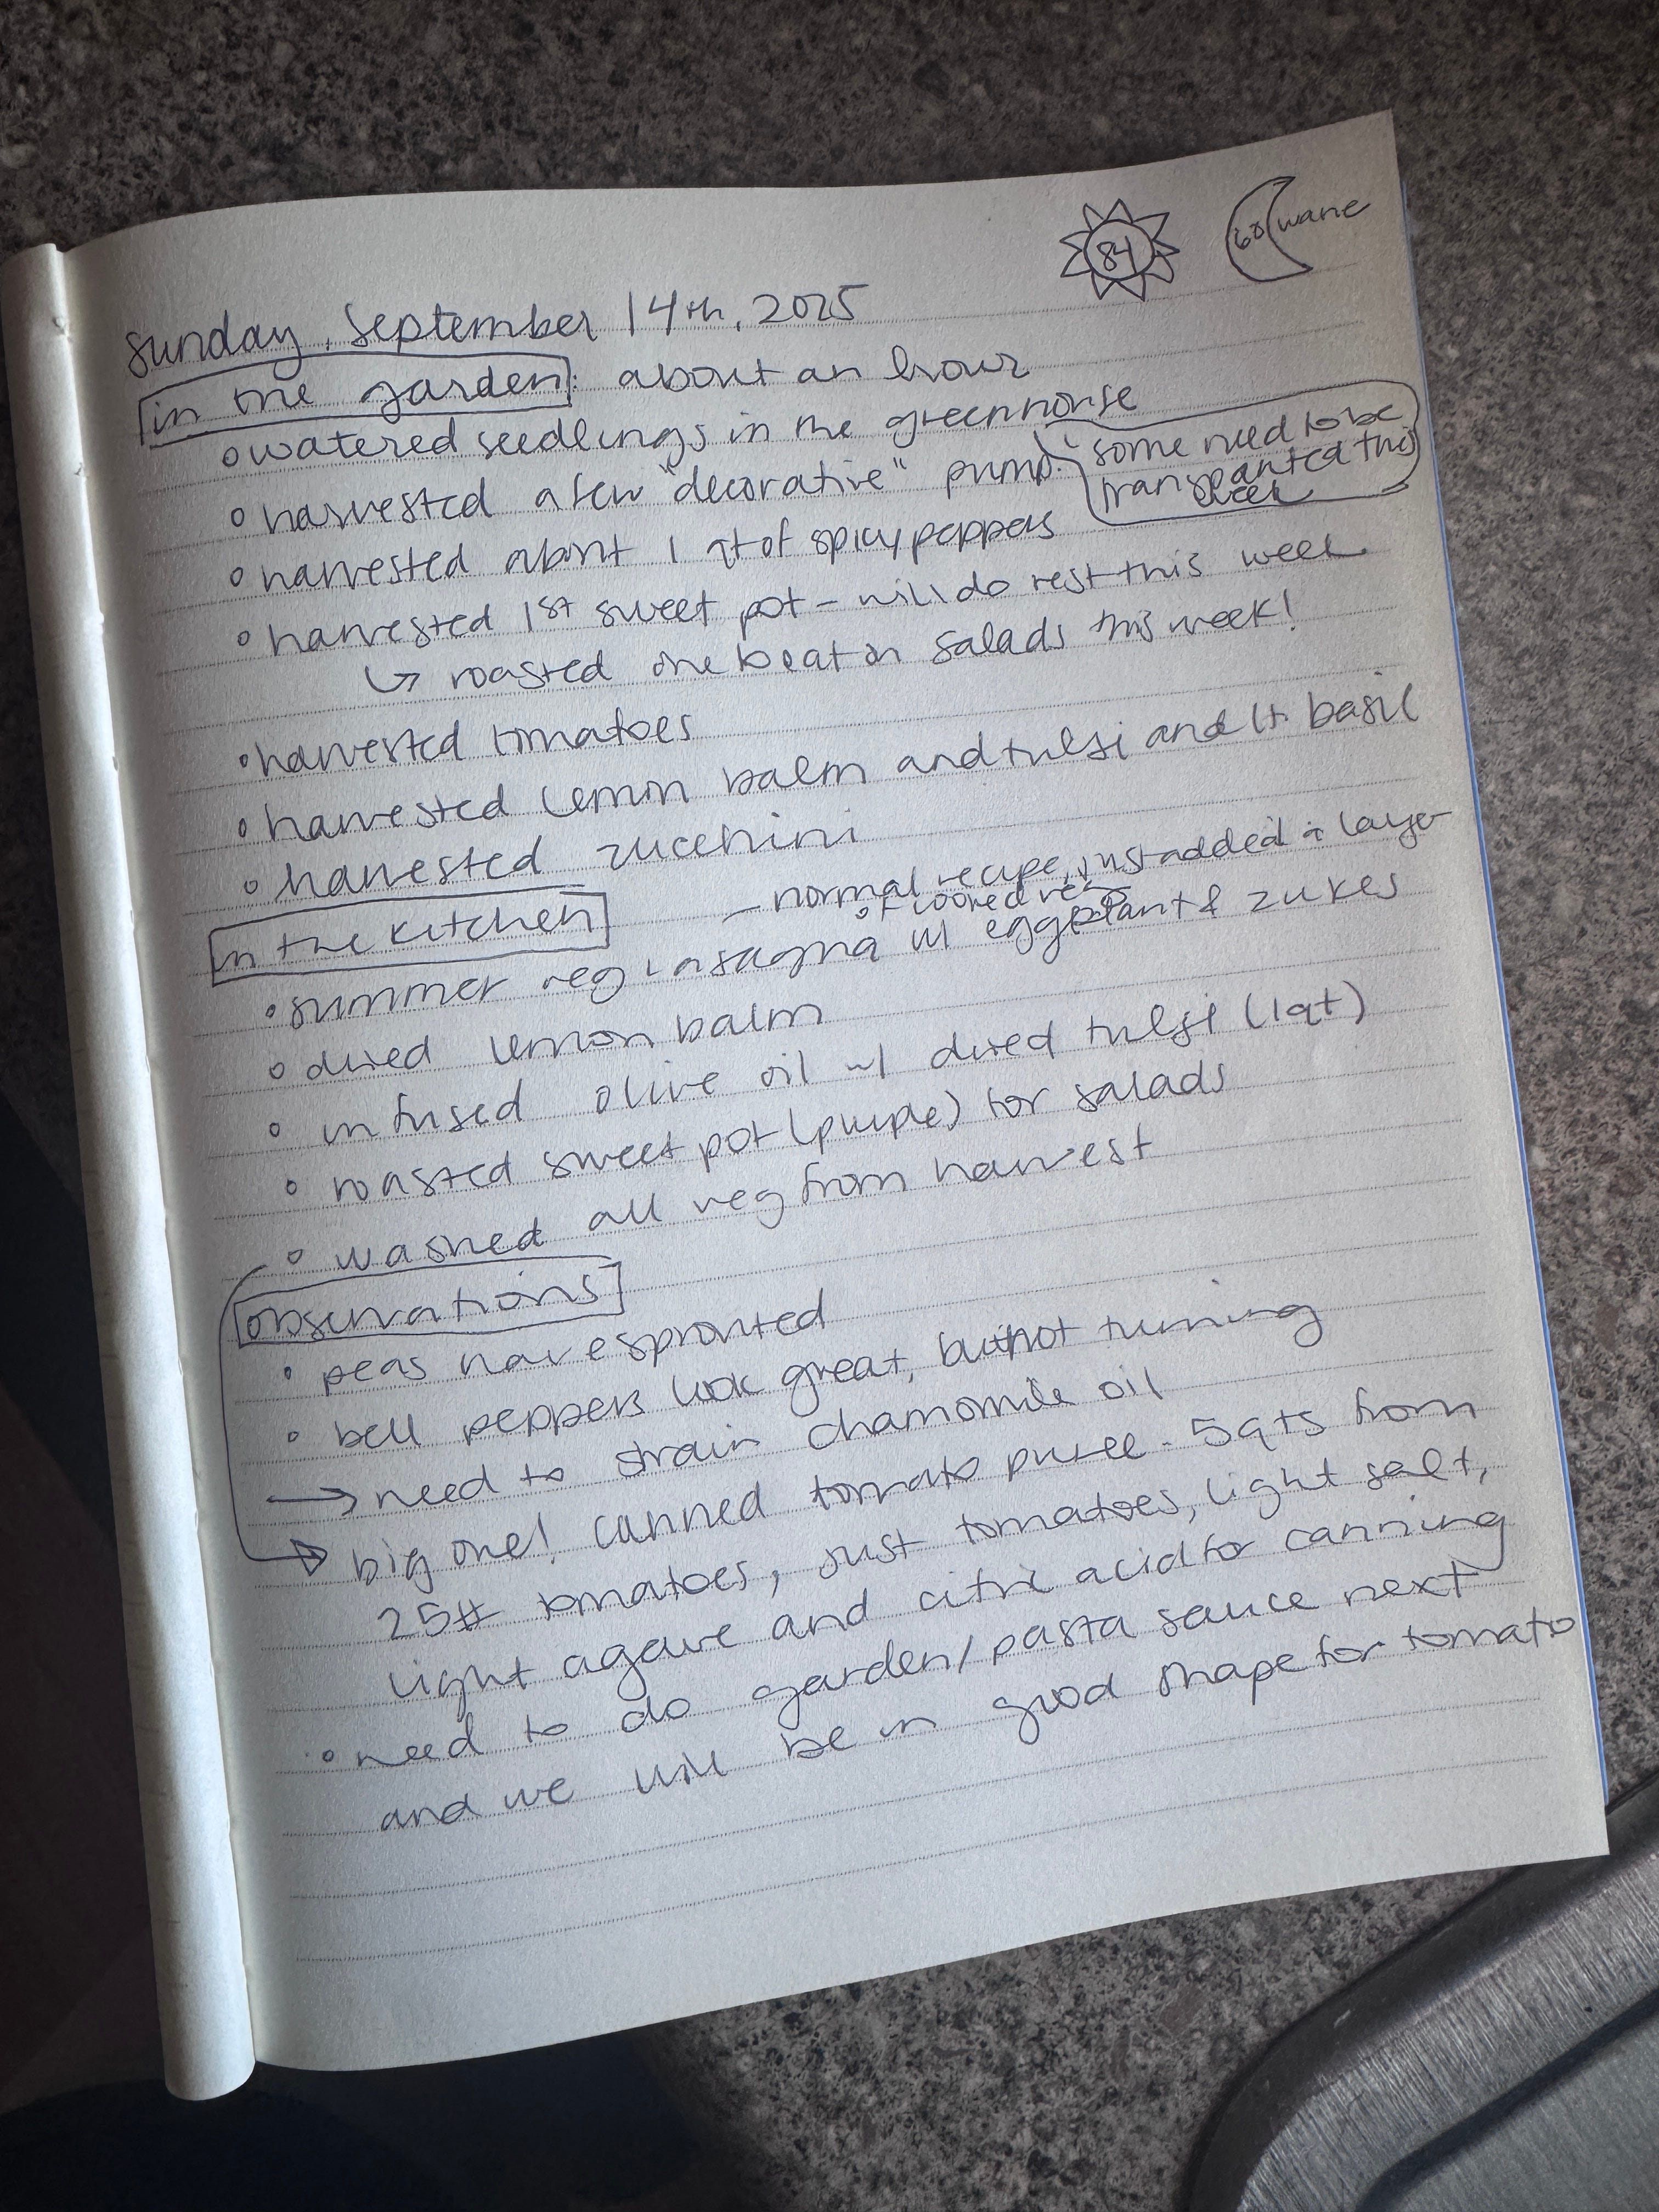 84 68 wane
sunday, September 14th, 2025
in the garden: about an hour
◦ watered seedlings in the greenhouse
some need to be
transplanted this
week
◦ harvested a few "decorative" pump.
◦ harvested about 1 qt of spicy peppers
◦ harvested 1st sweet pot - will do rest this week
↳ roasted one to eat on salads this week!
◦ harvested tomatoes
◦ harvested lemon balm and tulsi and lt basil
◦ harvested zucchini
in the kitchen
- normal recipe, just added a layer
of cooked veg
◦ summer veg lasagna w/ eggplant & zukes
◦ dried lemon balm
◦ infused olive oil w/ dried tulsi (1qt)
◦ roasted sweet pot (purple) for salads
◦ washed all veg from harvest
observations
◦ peas have sprouted
◦ bell peppers look great, but not turning
→ need to strain chamomile oil
→ big one! canned tomato puree - 5qts from
25# tomatoes, just tomatoes, light salt,
light agave and citric acid for canning
◦ need to do garden/pasta sauce next
and we will be in good shape for tomato